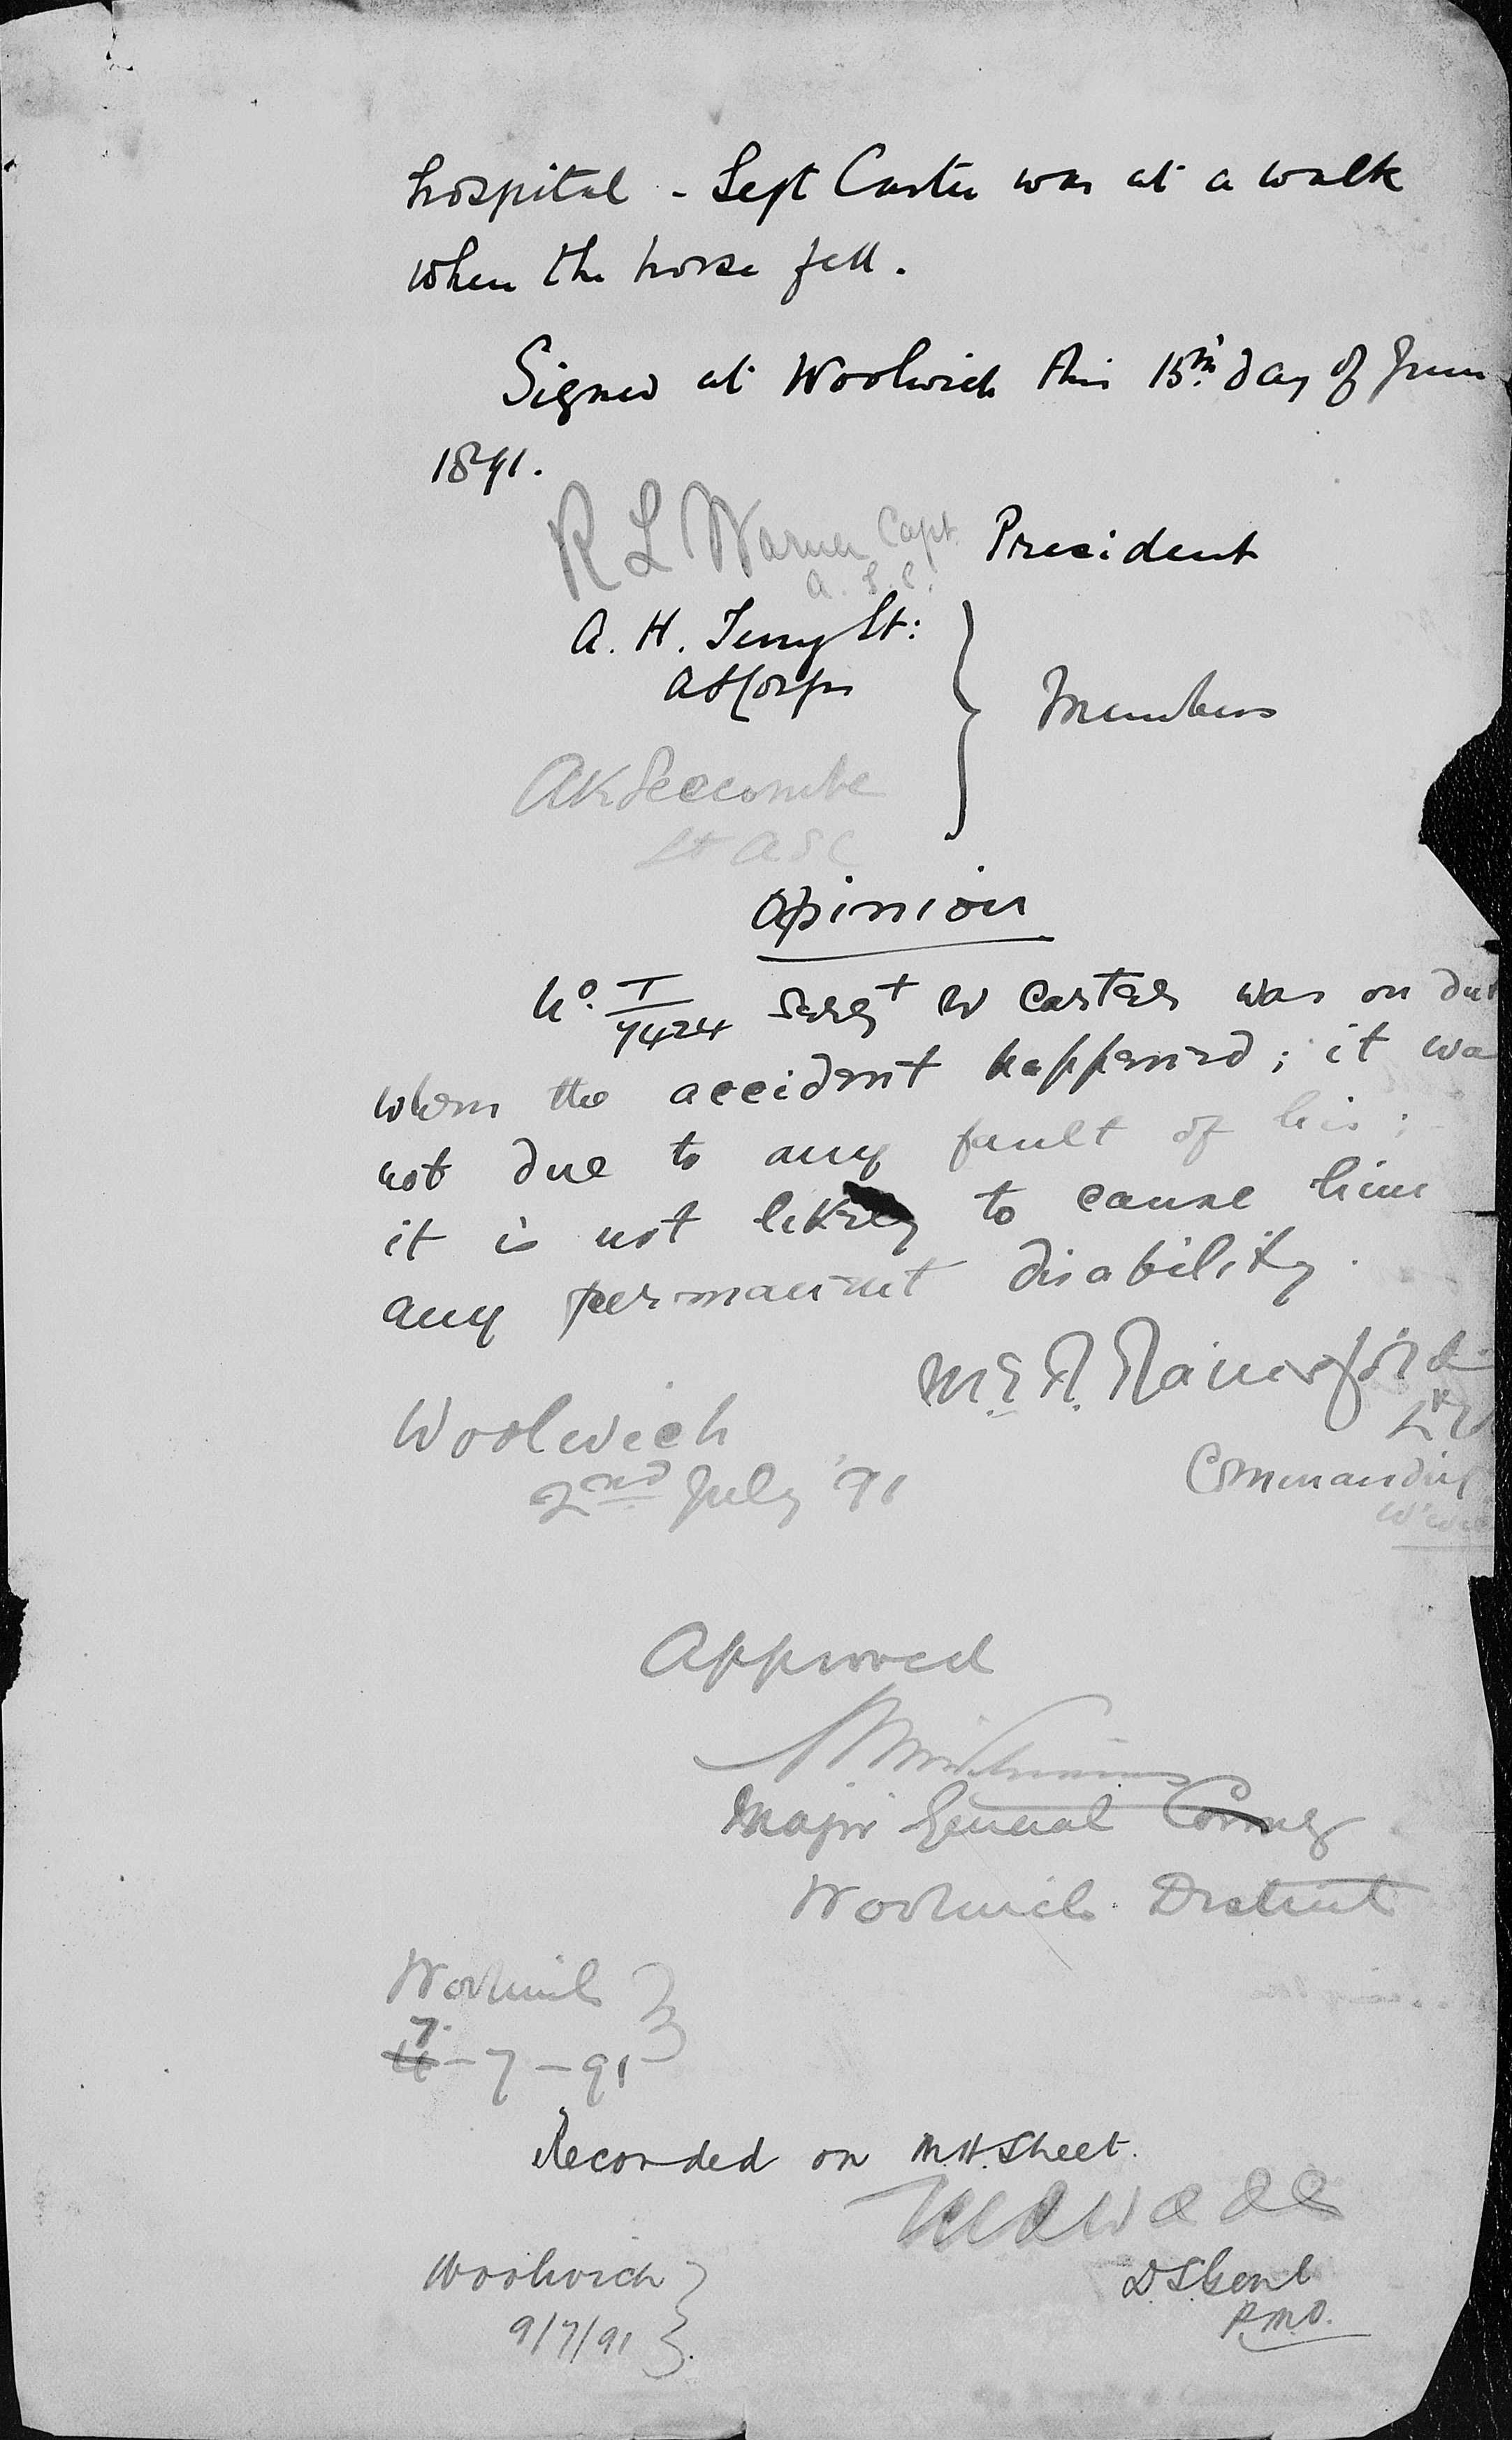 hospital - Sergt Carter was at a walk
when the horse fell.
Signed at Woolwich this 15th day of June
1891.
R L Warner Capt. President
A.S.C.
A. H. Terry Lt:
AS Corps
Members
AK Seccombe
Lt ASC
Opinion
No. T/7424 Sergt W Carter was on dut
when the accident happened; it wa
not due to any fault of his;
it is not likely to cause him
any permanent disability.
M.E.R. Rainsford
Woolwich
2nd July '91
Commanding
Approved
Major General Commg
Woolwich District
Woolwich
7-7-91
Recorded on M.H. Sheet.
Woolwich
D.S. Genl
9/7/91
P.M.O.